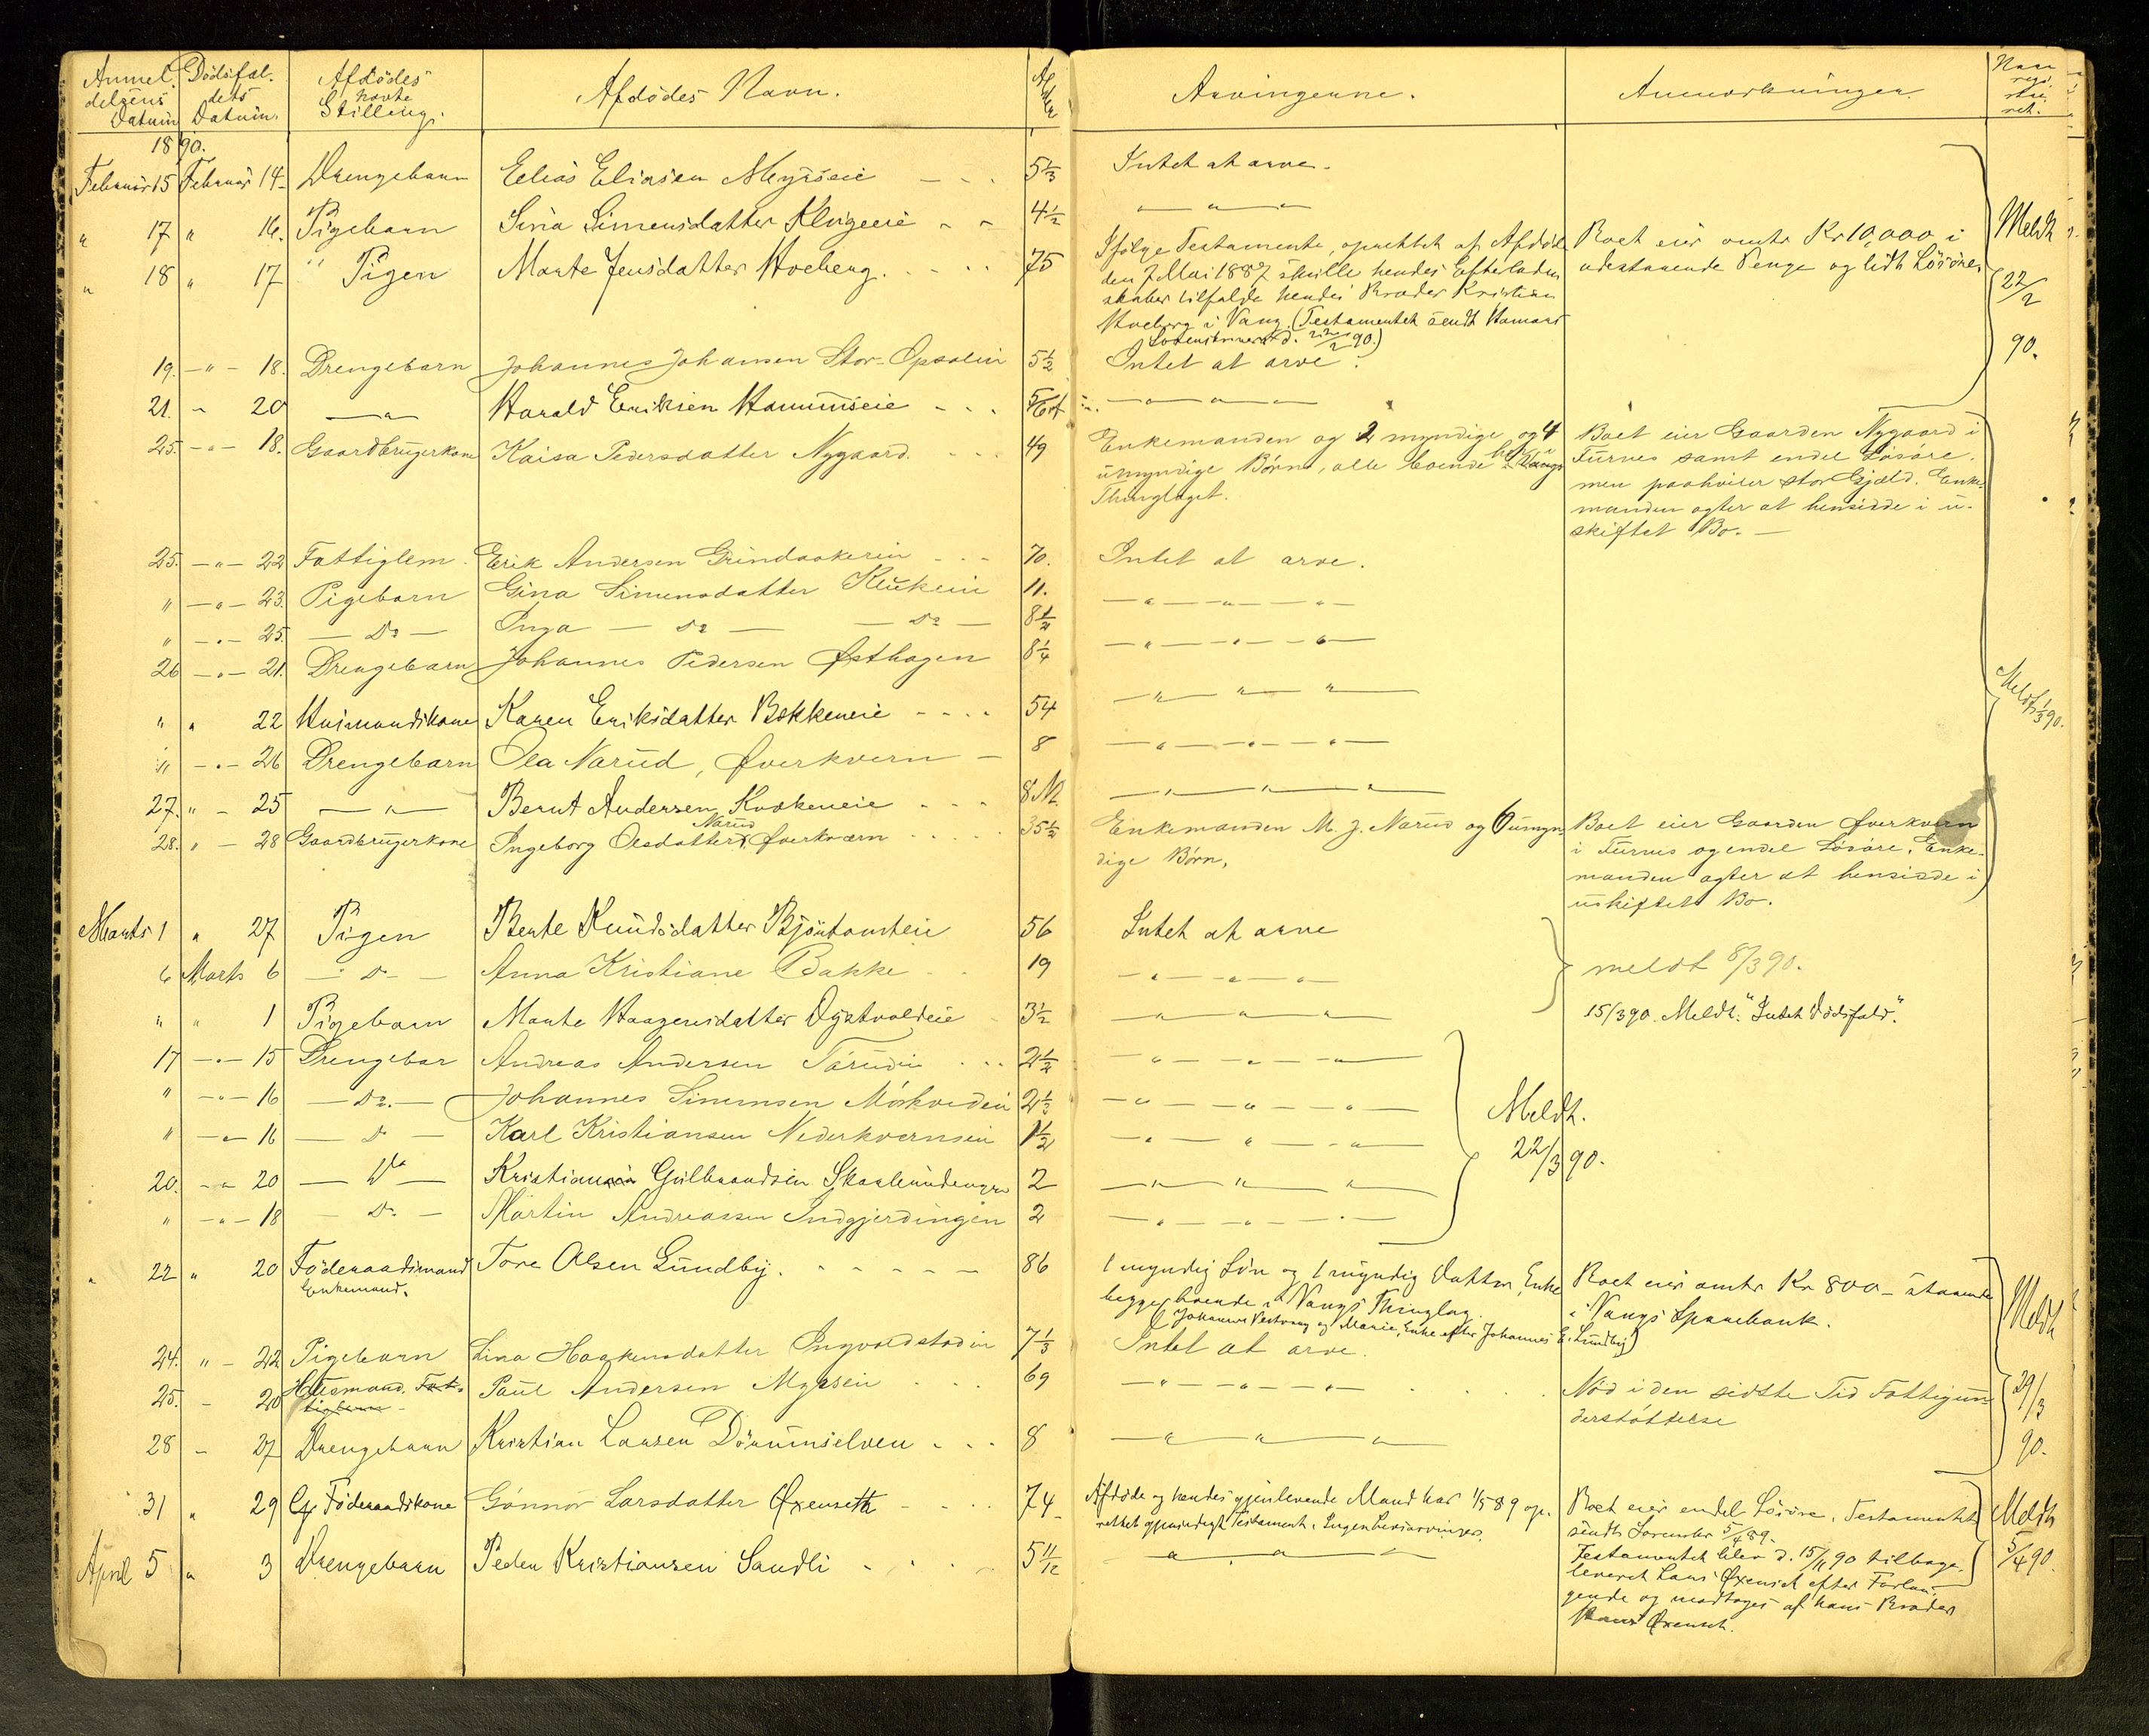 Anmel Dødsfal- Afdødes Afdødes Navn. Al Arvingerne. Anmerkninger. Naar
delsens dets havte der regi
Datum Datum. Stilling. stre
ret.
1890.
Februar 15 Februar 14 Drengebarn Elias Eliasen Myrseie 5 1/3 Intet at arve.
" 17 " 16. Pigebarn Sina Simensdatter 4 1/2 — " —
" 18 " 17 " Pigen Marte Jensdatter Hoeberg. 75 Ifølge Testamente, oprettet af Afdøde Boet eier omtr Kr 10,000 i Meldt
den 7 Mai 1887 skulle hendes Efterladen udestaaende Penge og lidt Løsøre. 22/2
skaber tilfalde hendes Broder Kristian
Hoeberg i Vang. (Testamentet sendt Hamar
d. 22/2 90.) 90.
19. — " — 18. Drengebarn Johannes Johansen Stor-Opsalei 5 1/2 Intet at arve.
21. " 20 — " — Harald Eriksen 5/6 — " — " —
25. — " — 18. Gaardbrugerkone Kaisa Pedersdatter Nygaard. 49 Enkemanden og 2 myndige og 4 Boet eier Gaarden Nygaard i
umyndige Børn, alle boende her i Vangs Furnes samt endel Løsøre,
Thinglaget. men paahviler stor Gjæld. Enke-
manden agter at hensidde i u-
skiftet Bo. —
25. — " — 22 Fattiglem. Erik Andersen Grindaakerin 70. Intet at arve.
" — " — 23. Pigebarn Gina Simensdatter Klukein 11. — " — " — " —
" — " — 25. — Do — Inga — do — — do — 8 1/2 — " — " — " —
26 — " — 21. Drengebarn Johannes Pedersen Østhagen 8 1/4 — " — " — " —
" " 22 Husmandskone Karen Eriksdatter Bekkeneie 54 — " — " — " — Meldt 1/3 90.
" — " — 26 Drengebarn Ola Narud, Øverkvern — 8 — " — " — " —
27. " - 25 — " — Bernt Andersen Kvækeneie 8 M. — " — " — " —
Narud
28. " - 28 Gaardbrugerkone Ingeborg Olsdatter, Øverkværn 35 1/2 Enkemanden M. J. Narud og 6 umyn Boet eier Gaarden Øverkvern
dige Børn. i Furnes og endel Løsøre. Enke-
manden agter at hensidde i
uskiftet Bo.
Marts 1 " 27 Pigen Berte Knudsdatter 56 Intet at arve
6 Marts 6 — do — Anna Kristiane Bakke 19 — " — " — " — meldt 8/3 90.
" " 1 Pigebarn Marte Haagensdatter 3 1/2 — " — " — " — 15/3 90. Meldt. "Intet Dødsfald".
17 — " — 15 Drengebar Andreas Andersen 2 1/2 — " — " — " —
" — " — 16 — do. — Johannes Simensen Mørkvedei 2 1/2 — " — " — " — Meldt.
" — " — 16 — do — Karl Kristiansen Nederkvernsei 1 1/2 — " — " — " — 22/3 90.
20. — " 20 — Do — Kristian Gulbrandsen 2 — " — " — " —
" — " — 18 — Do. — Martin Andreassen Indgjerdingen 2 — " — " — " —
" 22 " 20 Føderaadsmand Tore Olsen Lundby. 86 1 myndig Søn og 1 myndig Datter, Enke Boet eier omtr Kr 800 - staaende Meldt
Enkemand. begge boende i Vangs Thinglag. i Vangs Sparebank.
(Johannes Vestvang og Marie, Enke efter Johannes E. Lundby)
24. " - 22 Pigebarn Lina Haakensdatter Ingvoldstadin 7 1/3 Intet at arve.
25. - 20 Husmand. Fat- Paul Andersen Myrsein 69 — " — " — " — Nød i den sidste Tid Fattigun- 29/3
tiglem derstøttelse
28 - 27 Drengebarn Kristian Larsen 8 — " — " — 90.
31 " 29 Føderaadskone Gønnor Larsdatter Øxenseth 74 Afdøde og hendes gjenlevende Mand har 1/5 89 op- Boet eier endel Løsøre, Testamentet Meldt
rettet gjensidigt Testament. Ingen Livsarvinger. sendt Sorenskr 5/4 89. 5/4 90.
April 5 " 3 Drengebarn Peder Kristiansen Sandli 5 11/12 — " — " — Testamentet blev d. 15/11 90 tilbage-
leveret Lars Øxenset efter Forlan-
gende og modtoges af hans Broder
Hans Øxenset.